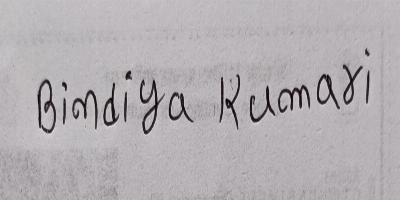 Bindiya Kumari